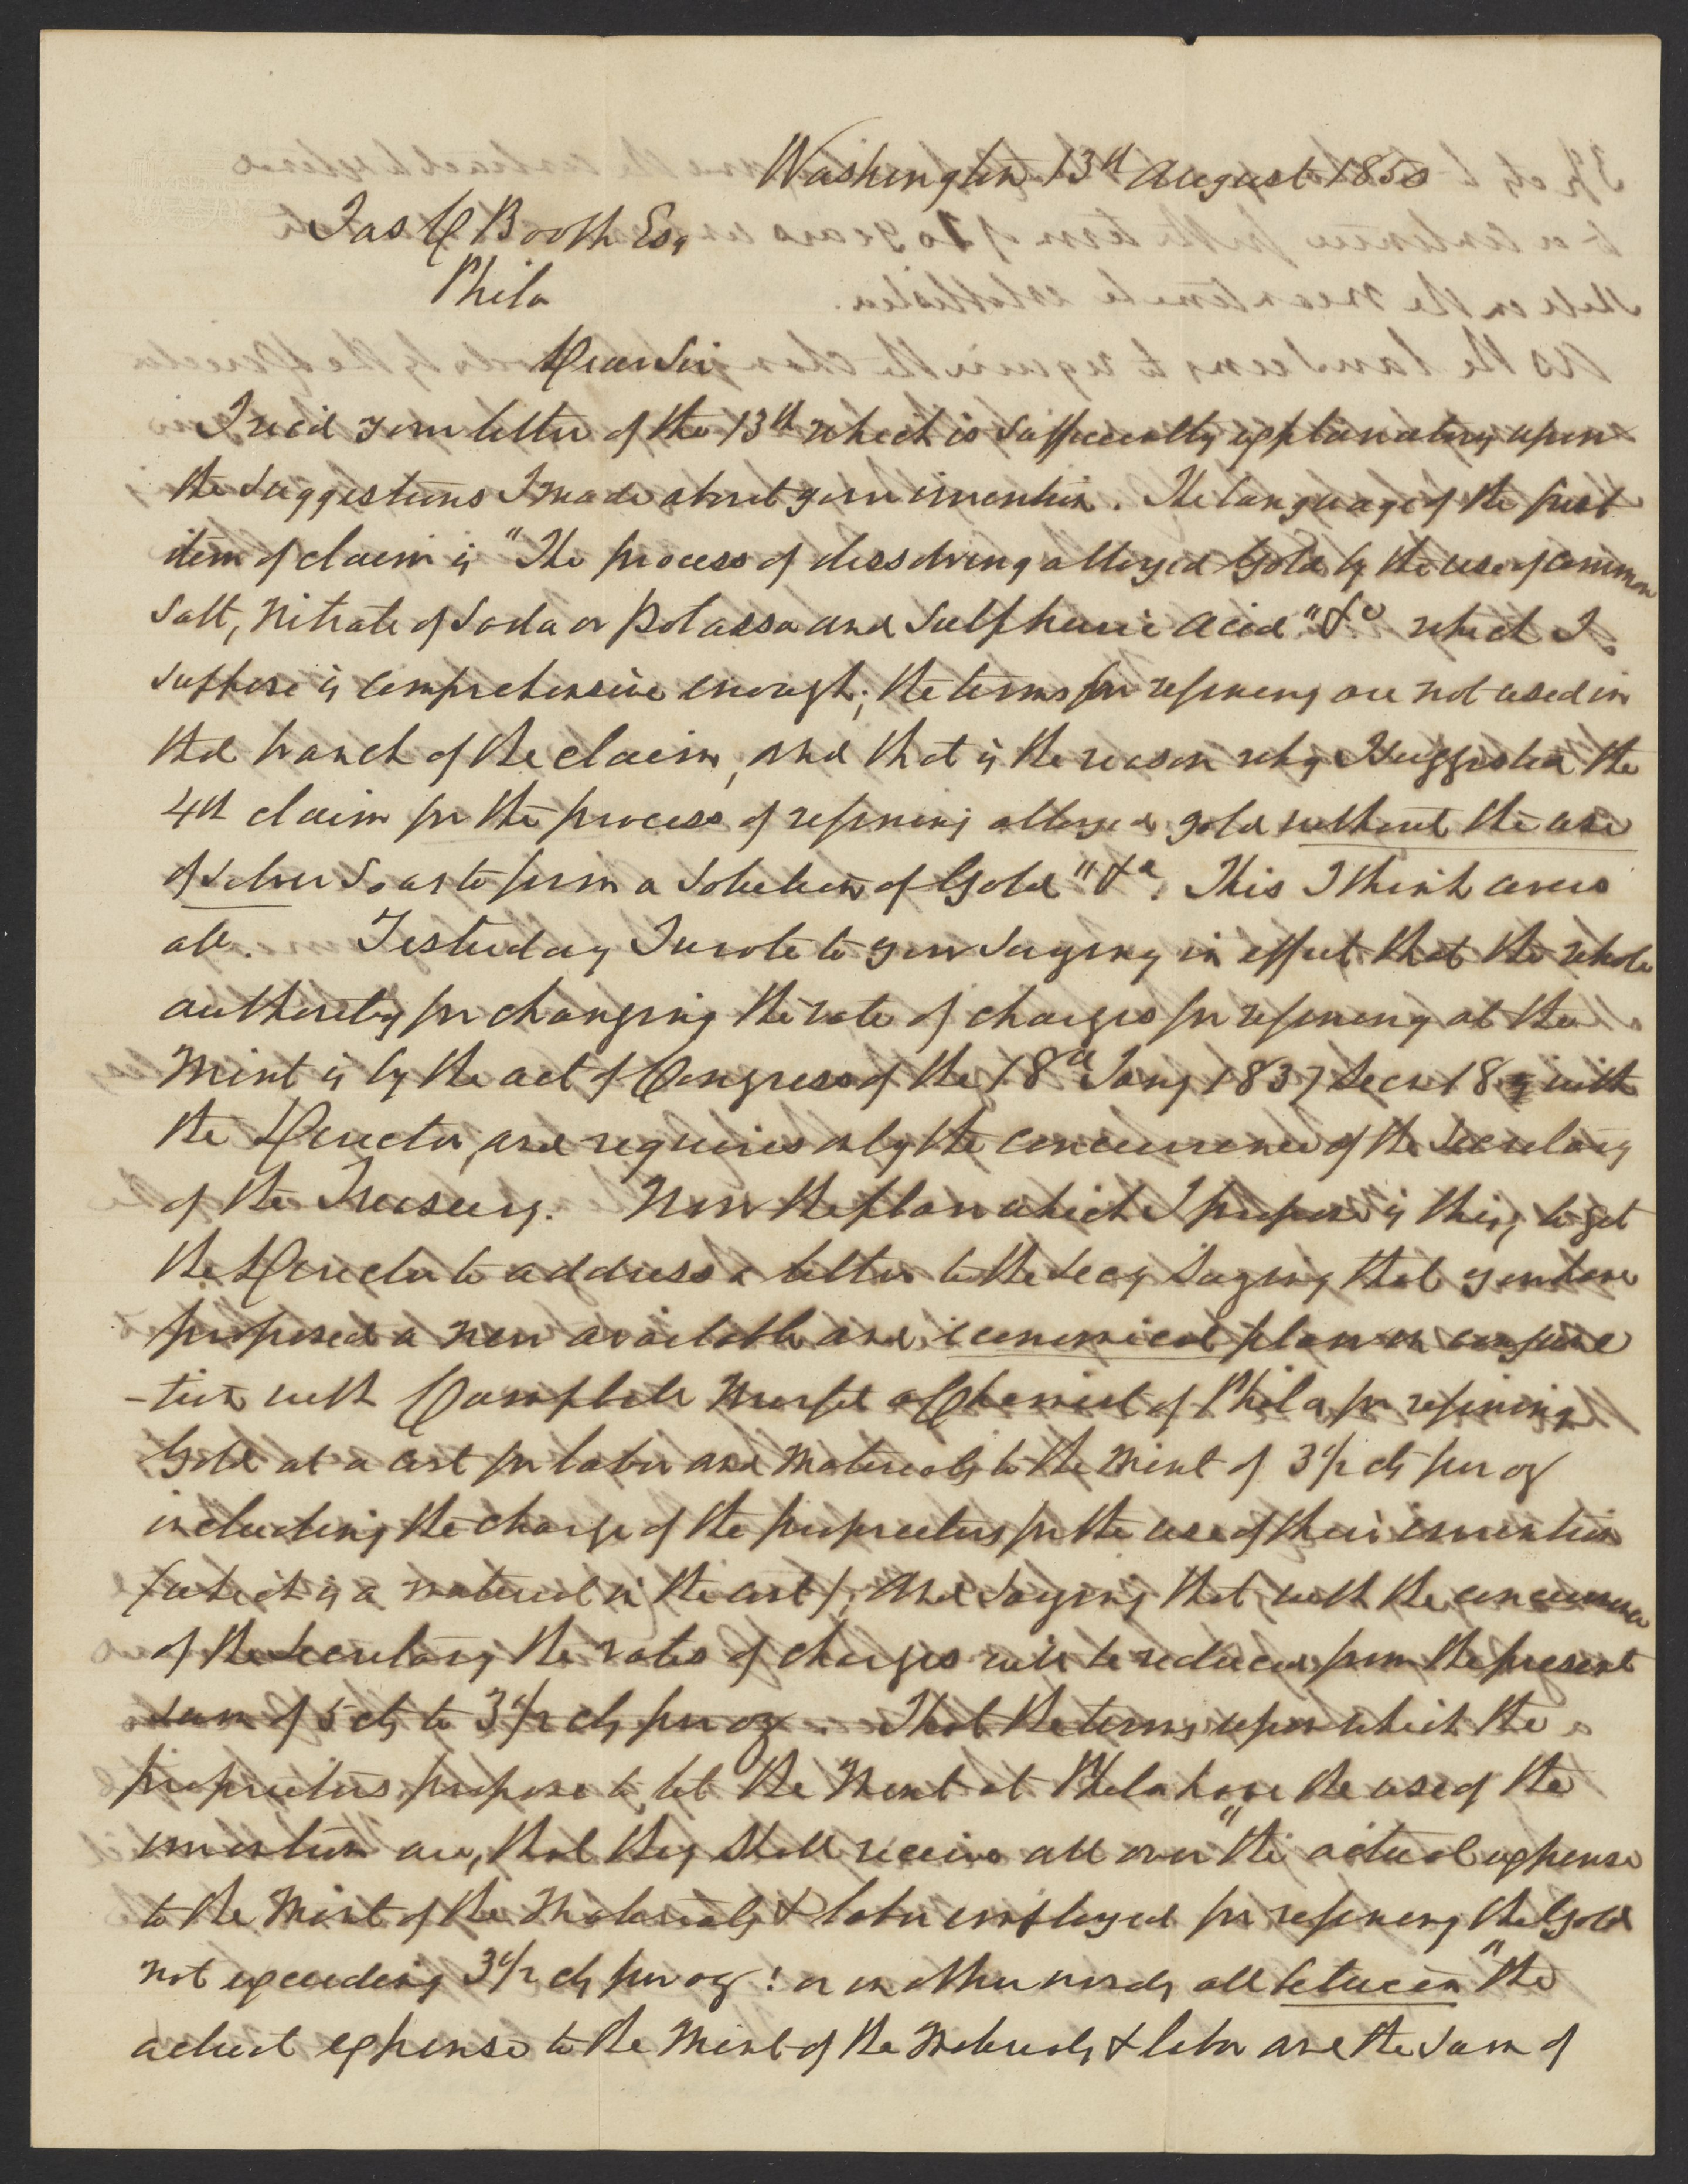 Washington 13th August 1850
Jas C Booth Esq
Phila
Dear Sir
I recd your letter of the 13th which is sufficiently explanatory upon
the suggestions I made about your invention. The language of the first
item of claim is "The process of dissolving alloyed Gold by the use of common
Salt, Nitrate of Soda or Potassa and Sulphuric acid" &c which I
suppose is comprehensive enough; the terms for refining are not used in
that branch of the claim, and that is the reason why I suggested the
4th claim for the process of refining alloyed gold without the use
of silver so as to form a solution of Gold" &c. This I think covers
all. Yesterday I wrote to you saying in effect that the whole
authority for changing the rate of charges for refining at the
Mint is by the act of Congress of the 18th Jany 1837 Secn 18 is with
the Director, and requires only the concurrence of the Secretary
of the Treasury. Now the plan which I propose is this, to get
the Director to address a letter to the Secy saying that you have
proposed a new available and economical plan in conjunc
-tion with Campbell Morfit a Chemist of Phila for refining
Gold at a cost for labor and materials to the Mint of 3 1/2 cts per oz
including the charge of the proprietors for the use of their invention
(which is a material in the cost); And saying that with the concurrence
of the Secretary the rates of charges will be reduced from the present
sum of 5 cts to 3 1/2 cts per oz. That the terms upon which the
proprietors propose to let the Mint at Phila have the use of the
invention are, that they shall receive all over "the actual expense
to the Mint of the Materials & labor employed for refining the Gold
not exceeding 3 1/2 cts per oz: or in other words all between "the
actual expense to the Mint of the Materials & labor and the sum of